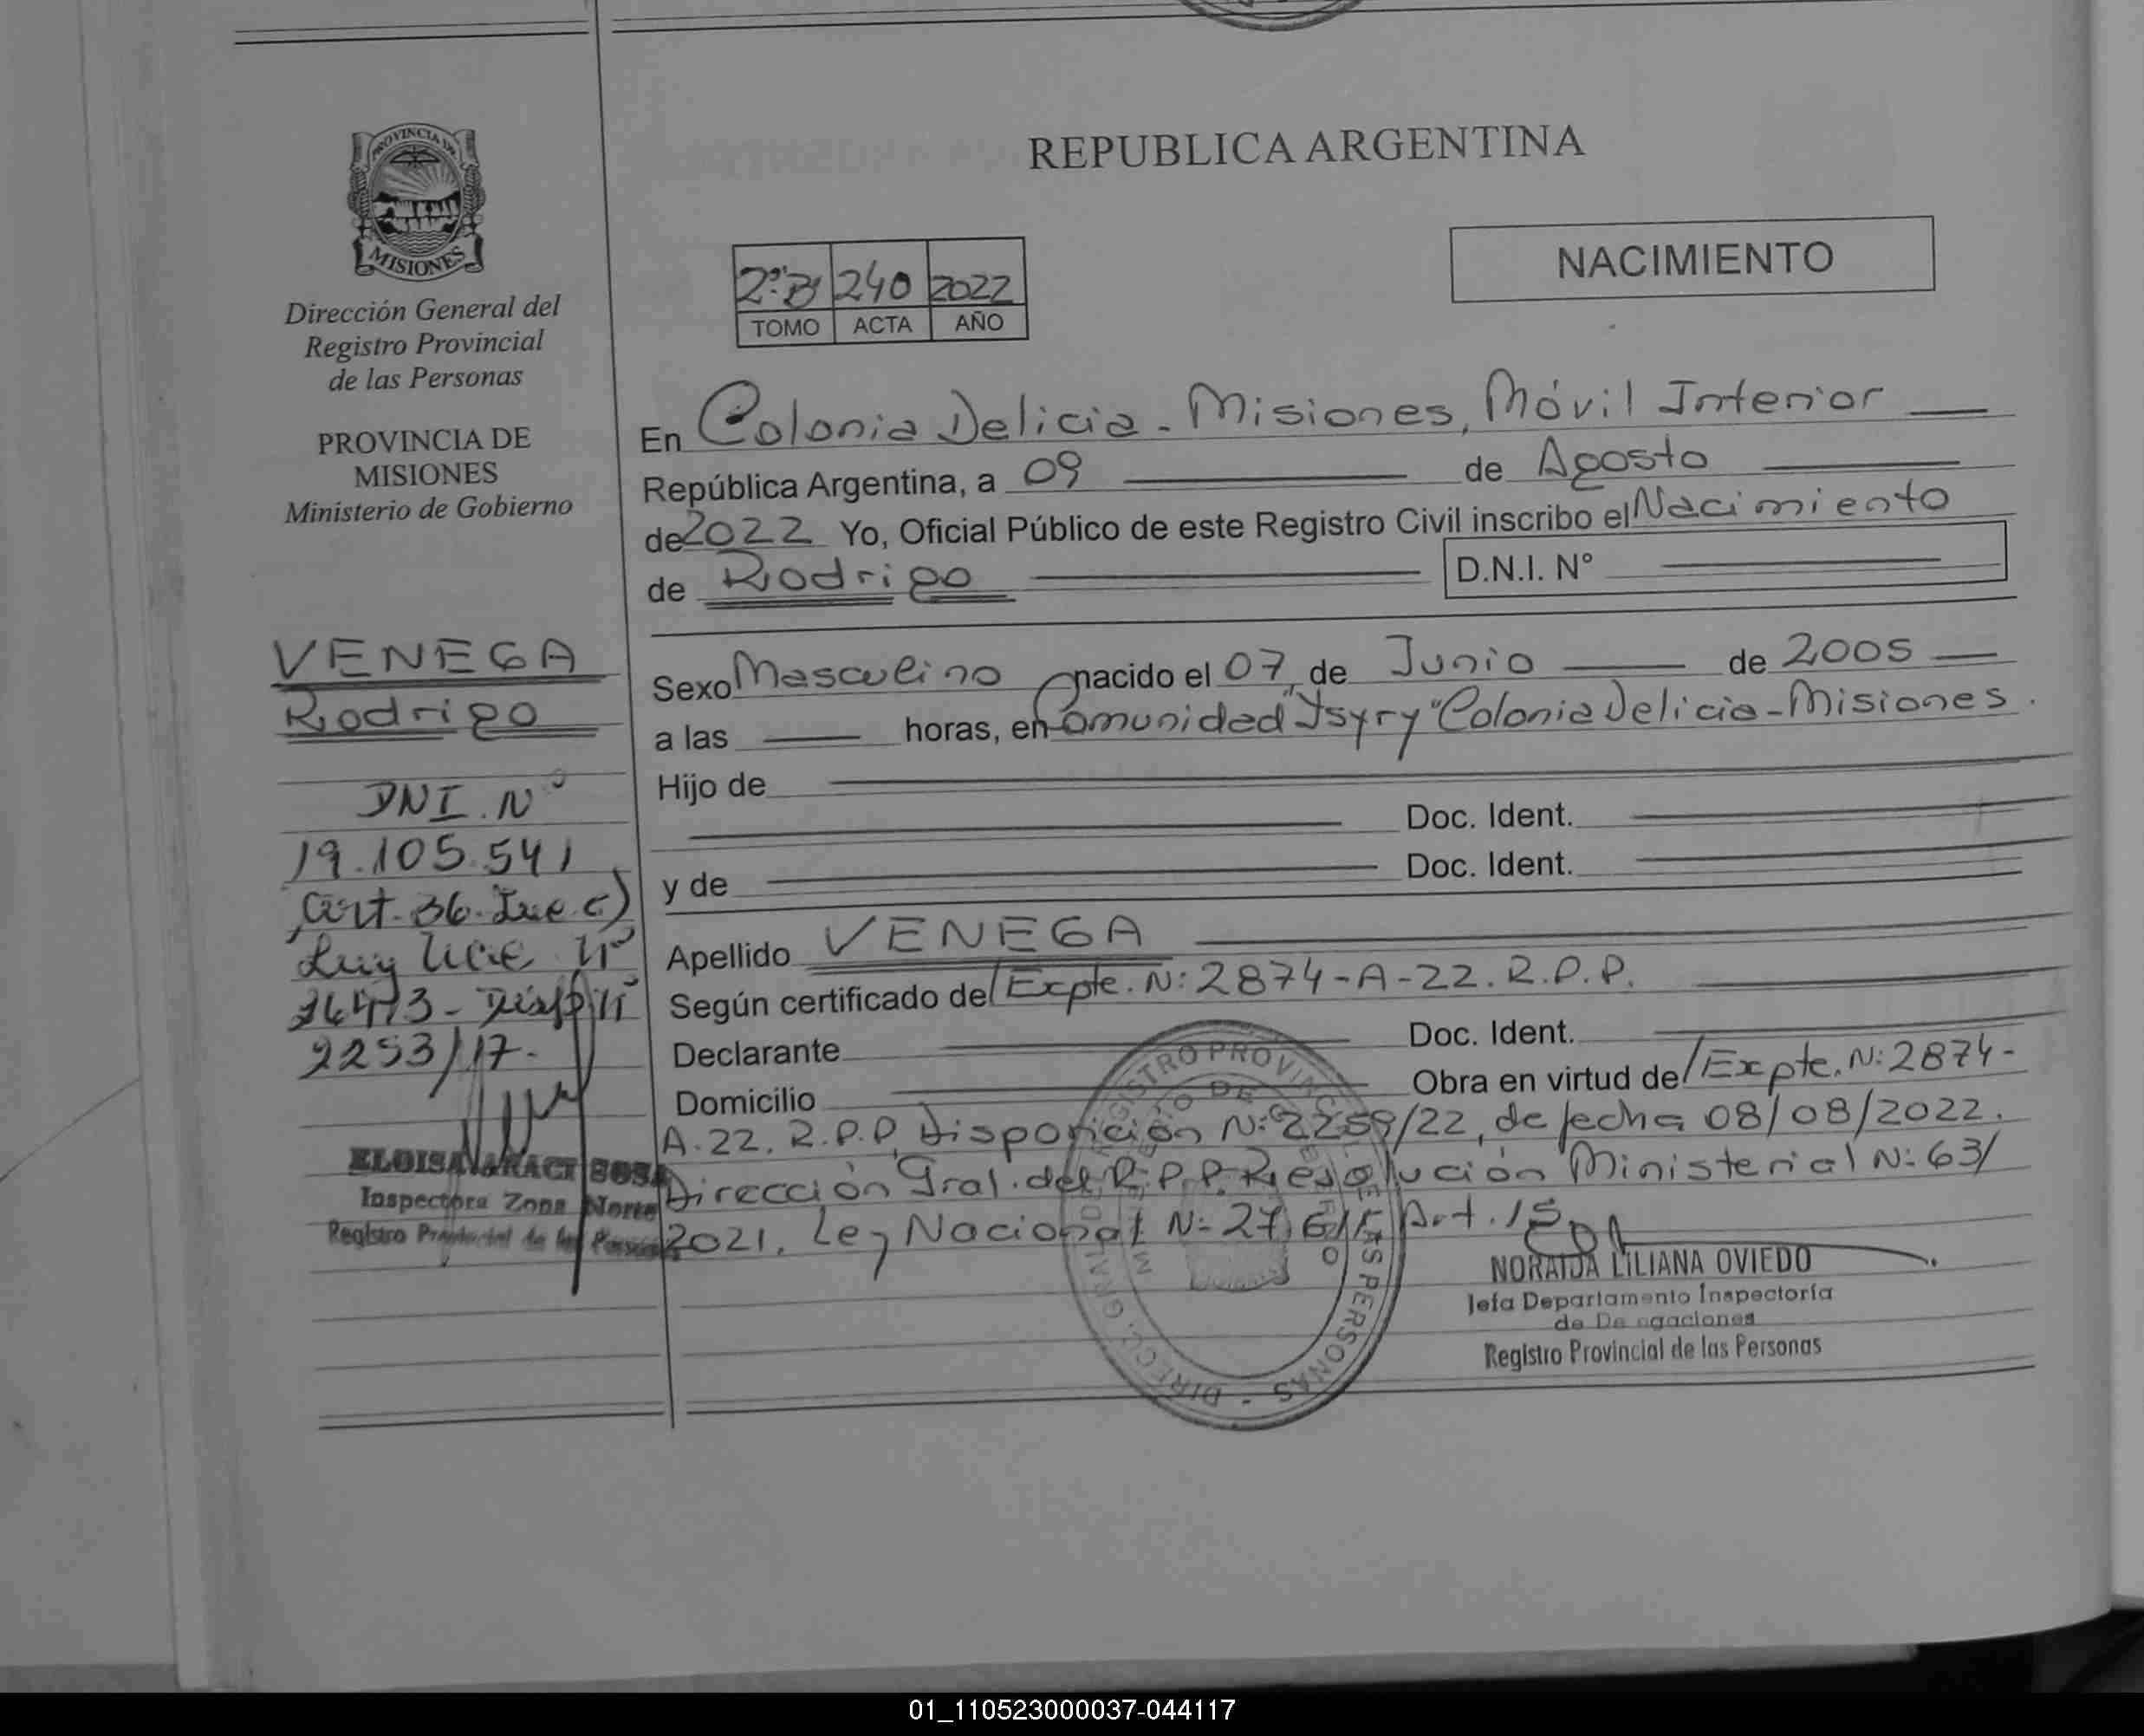 PROVINCIA DE
MISIONES
Dirección General del
Registro Provincial
de las Personas
PROVINCIA DE
MISIONES
Ministerio de Gobierno
VENEGA
Rodrigo
DNI. Nº
19.105.541
Art. 36. Inc. c)
Ley Nº
26413 - Disp Nº
2253/17.
Inspectora Zona Norte
Registro Provincial de las Personas
REPUBLICA ARGENTINA
NACIMIENTO
2º"B" 240 2022
TOMO ACTA AÑO
En Colonia Delicia - Misiones, Móvil Interior
República Argentina, a 09 de Agosto
de 2022 Yo, Oficial Público de este Registro Civil inscribo el Nacimiento
de Rodrigo D.N.I. Nº
Sexo Masculino nacido el 07 de Junio de 2005
a las horas, en Comunidad "Isyry" Colonia Delicia - Misiones.
Hijo de
Doc. Ident.
y de Doc. Ident.
Apellido VENEGA
Según certificado de/ Expte. N: 2874-A-22. R.P.P.
Declarante Doc. Ident.
Domicilio Obra en virtud de/ Expte. N: 2874-
A-22. R.P.P, Disposición N: 2259/22, de fecha 08/08/2022.
Dirección Gral. del R.P.P. Resolución Ministerial N: 63/
2021. Ley Nacional N: 27.611 Art. 15.
NORAIDA LILIANA OVIEDO
Jefa Departamento Inspectoría
de Delegaciones
Registro Provincial de las Personas
01_110523000037-044117